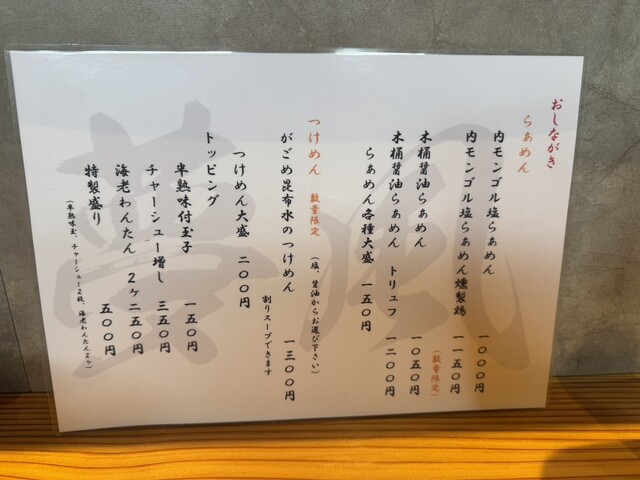 おしながき
らぁめん
内モンゴル塩らぁめん 一〇〇〇円
内モンゴル塩らぁめん燻製鶏 一一五〇円
(数量限定)
木桶醤油らぁめん 一〇五〇円
木桶醤油らぁめん トリュフ 一二〇〇円
らぁめん各種大盛 一五〇円
つけめん 数量限定 (塩、醤油からお選び下さい)
がごめ昆布水のつけめん 一三〇〇円
割りスープできます
つけめん大盛 二〇〇円
トッピング
半熟味付玉子 一五〇円
チャーシュー増し 三五〇円
海老わんたん 2ヶ二五〇円
特製盛り 五〇〇円
(半熟味玉、チャーシュー2枚、海老わんたん2ヶ)
夢風